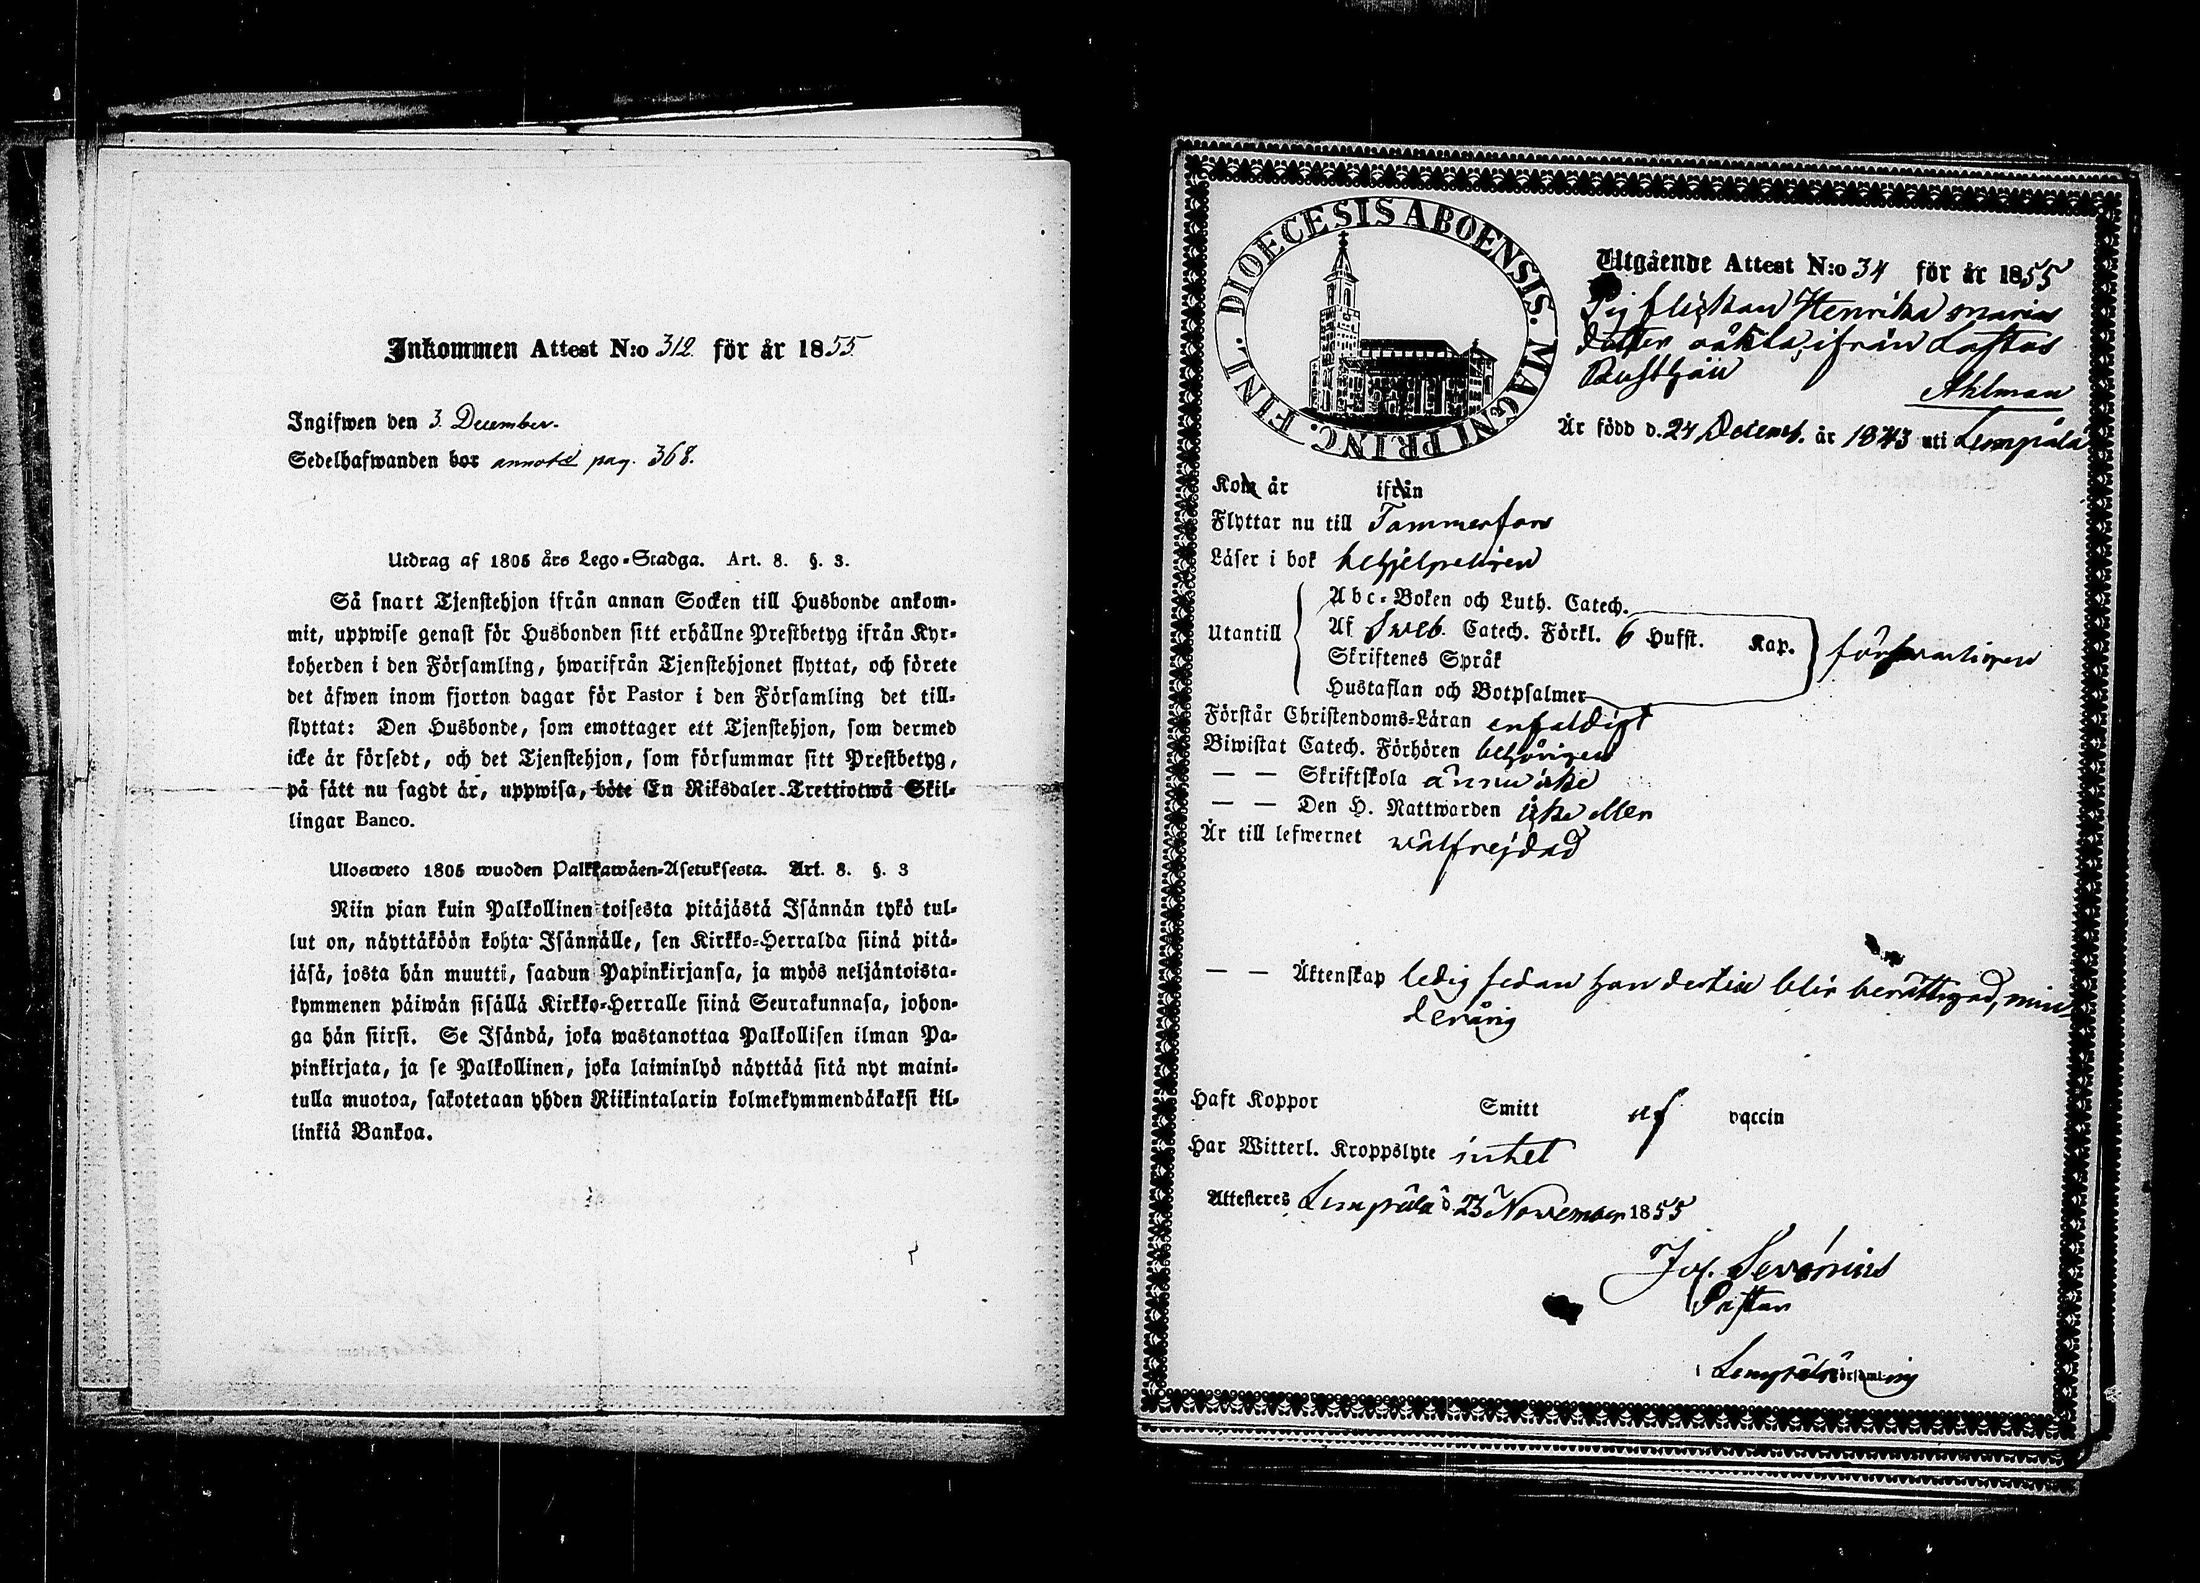 Inkommen Attest N:o 312 för år 1855.
Ingifwen den 3. December.
Sedelhafwanden bor annoté pag. 368.
Utdrag af 1805 års Lego-Stadga. Art. 8. §. 3.
Så snart Tjenstehjon ifrån annan Socken till Husbonde ankom-
mit, uppwise genast för Husbonden sitt erhållne Prestbetyg ifrån Kyr-
koherden i den Församling, hwarifrån Tjenstehjonet flyttat, och förete
det äfwen inom fjorton dagar för Pastor i den Församling det till-
flyttat: Den Husbonde, som emottager ett Tjenstehjon, som dermed
icke är försedt, och det Tjenstehjon, som försummar sitt Prestbetyg,
på sätt nu sagdt är, uppwisa, böte En Riksdaler Trettiotwå Skil-
lingar Banco.
Ulosweto 1805 wuoden Palkkawäen-Asetuksesta. Art. 8. §. 3
Niin pian kuin Palkollinen toisesta pitäjästä Isännän tykö tul-
lut on, näyttäköön kohta Isännälle, sen Kirkko-Herralda siinä pitä-
jäsä, josta hän muutti, saadun Papinkirjansa, ja myös neljäntoista-
kymmenen päiwän sisällä Kirkko-Herralle siinä Seurakunnasa, johon-
ga hän siirsi. Se Isändä, joka wastanottaa Palkollisen ilman Pa-
pinkirjata, ja se Palkollinen, joka laiminlyö näyttää sitä nyt maini-
tulla muotoa, sakotetaan yhden Riikintalarin kolmekymmendäkaksi kil-
linkiä Bankoa.
DIOECESIS ABOENSIS. MAGNI PRINC. FINL.
Utgående Attest N:o 34 för år 1855
Pigflickan Henrika Maria
dotter ifrån Laftas
Rusthåll
Ahlman
Är född d. 24 Decemb. år 1843 uti Lempälä
Kom år ifrån
Flyttar nu till Tammerfors
Läser i bok behjelpeligen
Utantill
Abc-Boken och Luth. Catech.
Af Sveb. Catech. Förkl. 6 Hufst. Kap. försvarligen
Skriftenes Språk
Hustaflan och Botpsalmer
Förstår Christendoms-Läran enfaldigt
Biwistat Catech. Förhören behörigen
— — Skriftskola ännu icke
— — Den H. Nattwarden icke eller
Är till lefwernet wälfrejdad
— — Äktenskap ledig sedan hon dertill blir berättigad, min-
derårig
Haft Koppor Smitt af vaccin
Har Witterl. Kroppslyte intet
Attesteres Lempälä d. 23 November 1855
Jos. Severnius
Pastor
i Lempälä församling